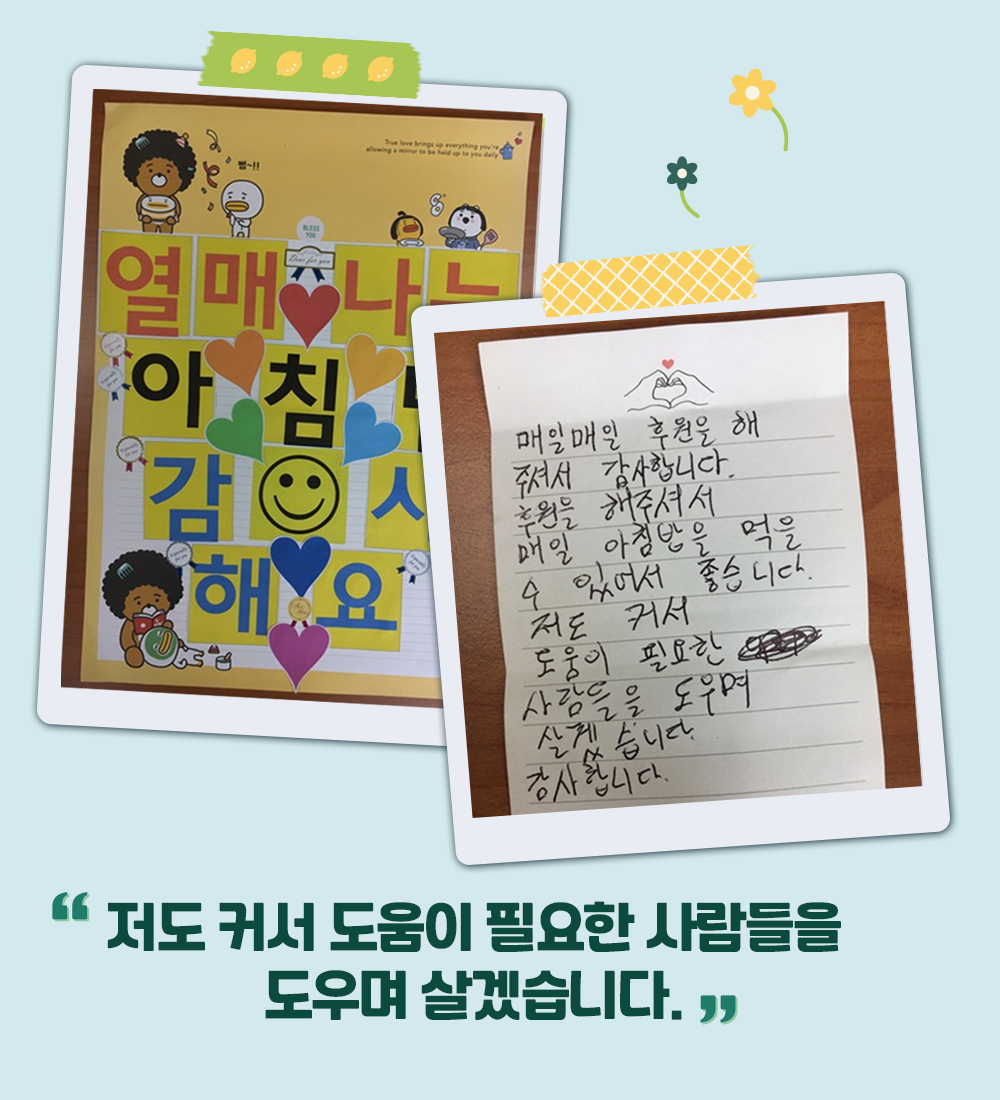 True love brings up everything you're
allowing a mirror to be held up to you daily
BLESS
YOU
열매 나
아침
감
해요
매일매일 후원을 해
주셔서 감사합니다.
후원을 해주셔서
매일 아침밥을 먹을
수 있어서 좋습니다.
저도 커서
도움이 필요한
사람들을 도우며
살겠습니다.
감사합니다.
“ 저도 커서 도움이 필요한 사람들을
도우며 살겠습니다. ”